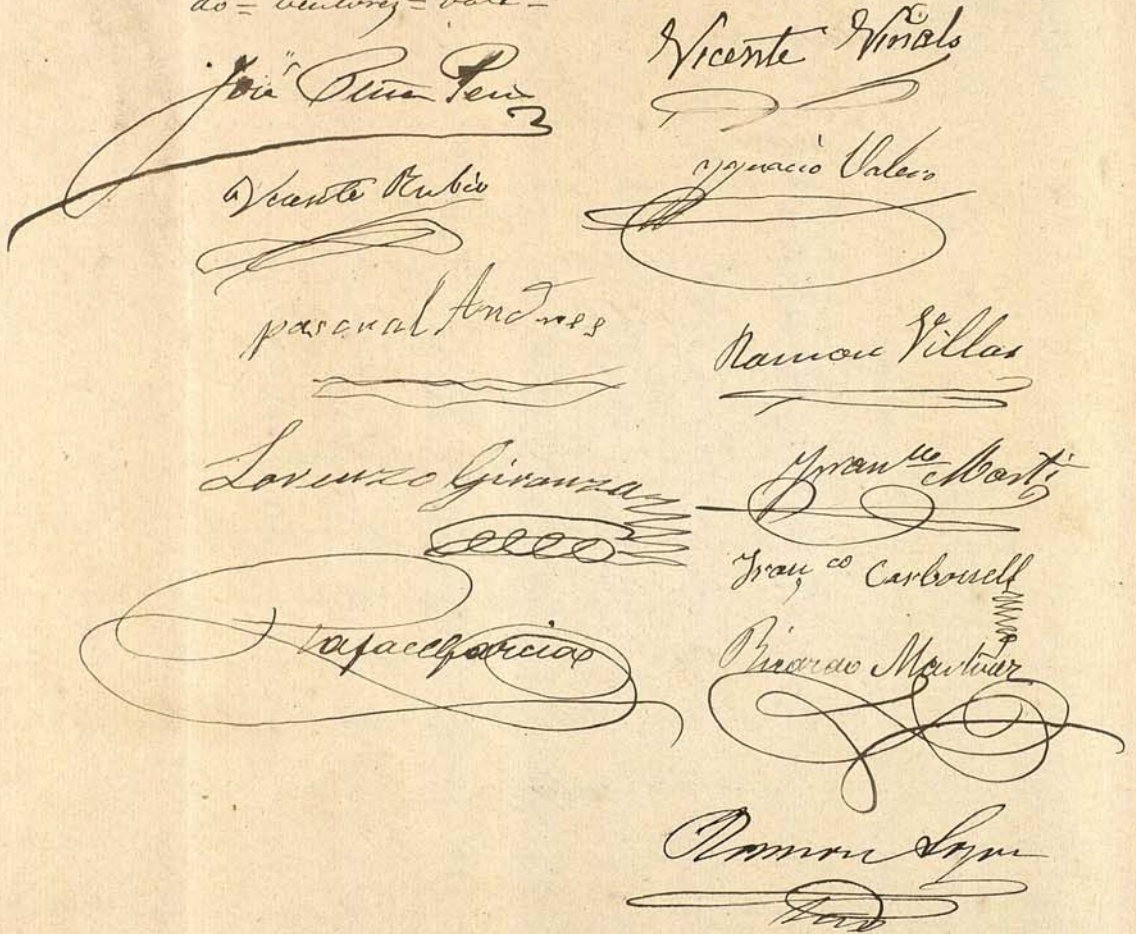 José Peris
Vicente Rubio
pascual Andres
Lorenzo Gironza
Rafael Garcia
Vicente Viñals
Ygnacio Valero
Ramon Villar
Fran.co Marti
Fran.co Carbonell
Ricardo Martinez
Ramon